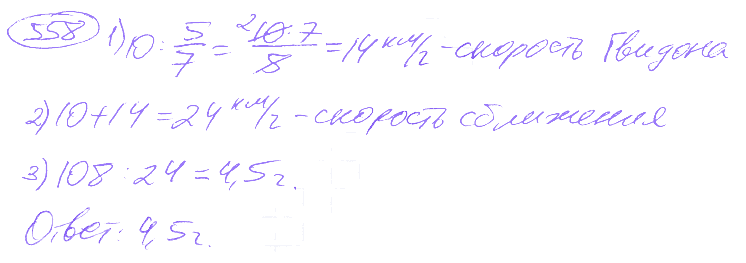 558 1) 10 : 5/7 = ²10·7/8 = 14 км/г - скорость Гвидона
2) 10 + 14 = 24 км/г - скорость сближения
3) 108 : 24 = 4,5 г.
Ответ: 4,5 г.